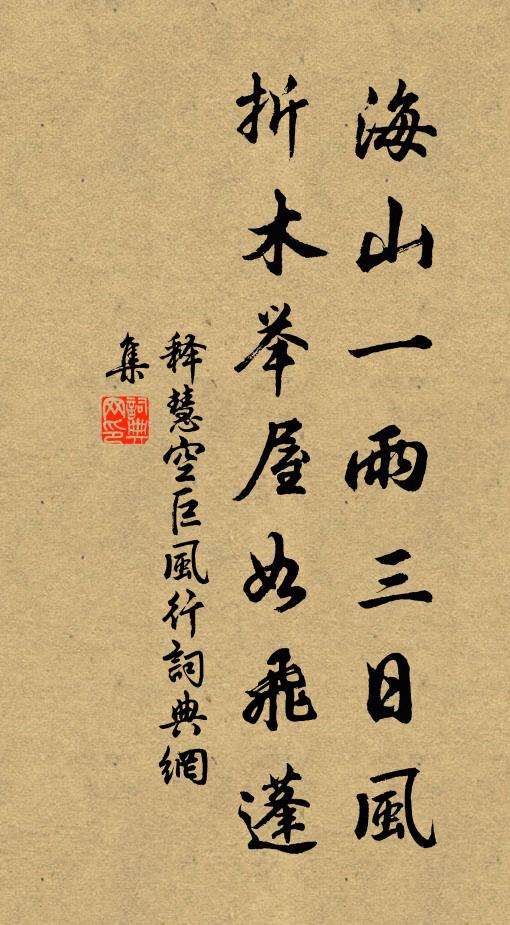 海山一雨三日風
折木举屋如飛蓬
释慧空巨風行詞典網
集
詞典网印